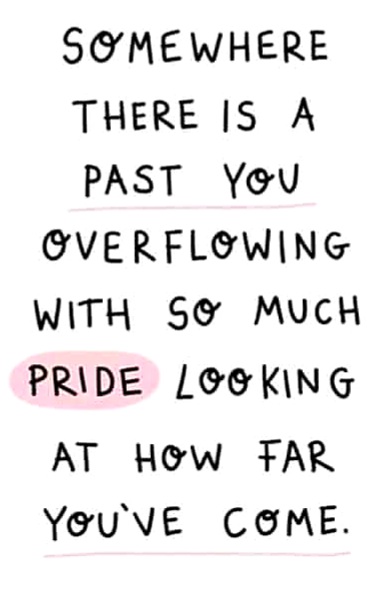 SOMEWHERE
THERE IS A
PAST YOU
OVERFLOWING
WITH SO MUCH
PRIDE LOOKING
AT HOW FAR
YOU'VE COME.